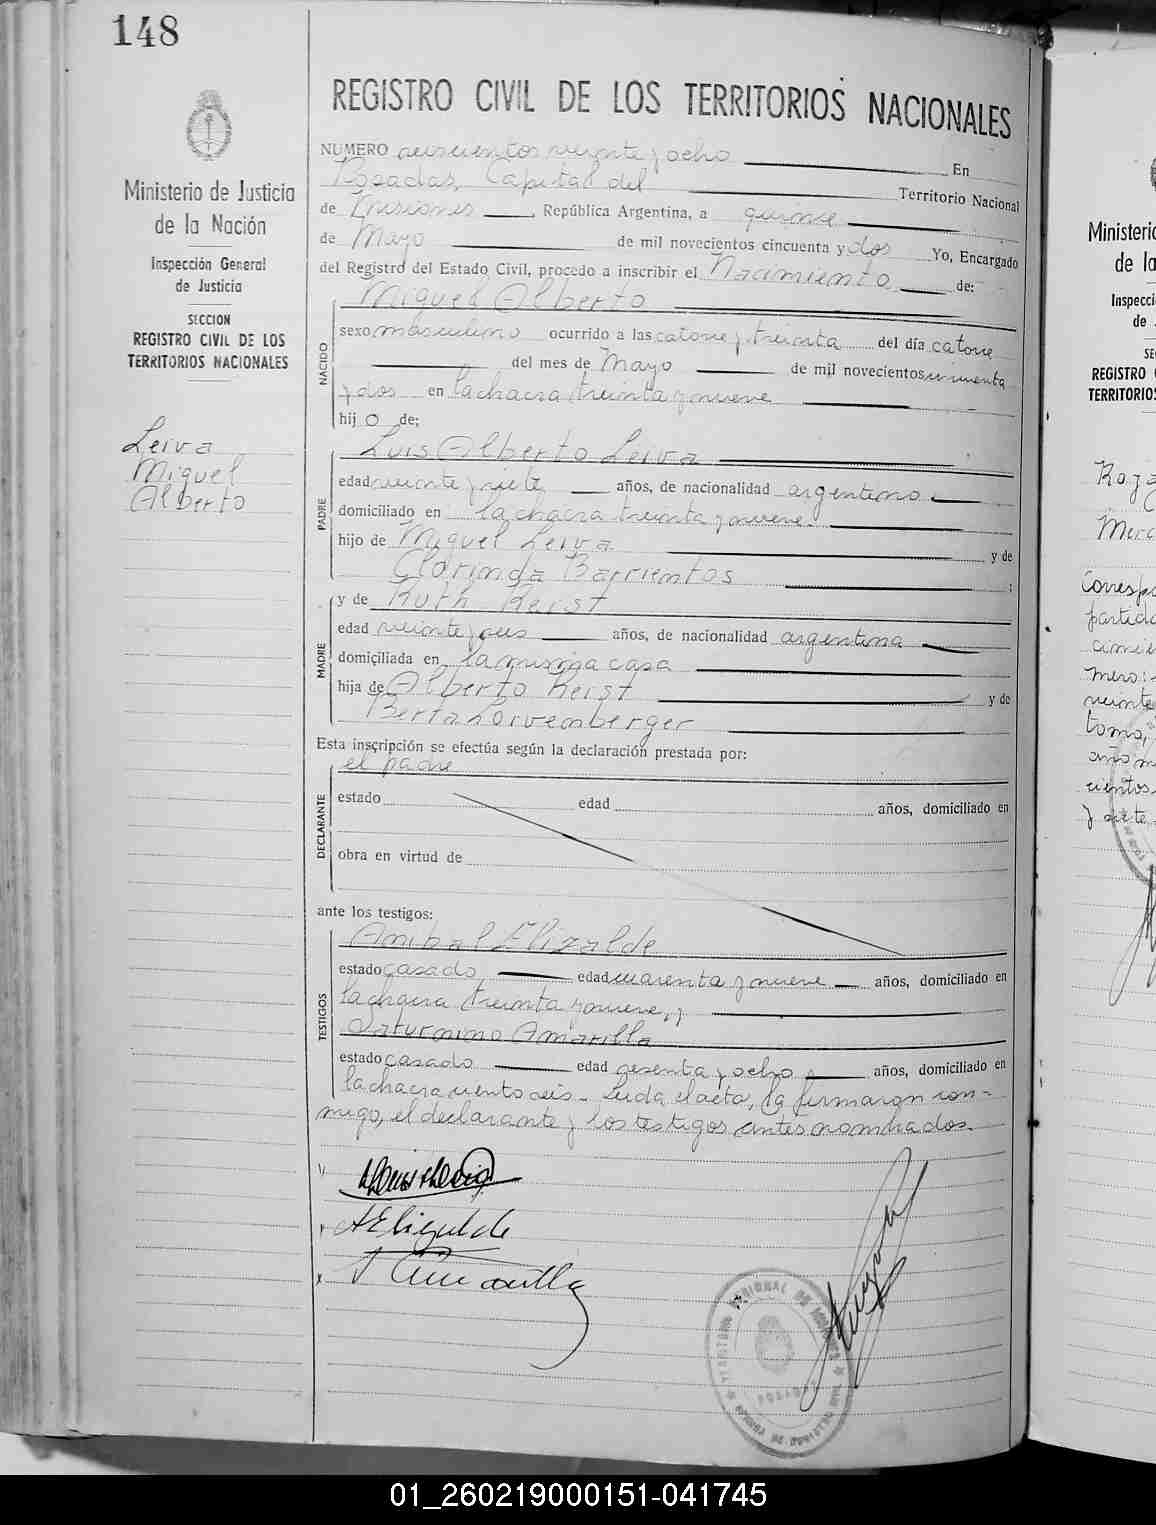 148
REGISTRO CIVIL DE LOS TERRITORIOS NACIONALES
Ministerio de Justicia
de la Nación
Inspección General
de Justicia
SECCION
REGISTRO CIVIL DE LOS
TERRITORIOS NACIONALES
Leiva
Miguel
Alberto
NUMERO seiscientos veinte y ocho En
Posadas, Capital del Territorio Nacional
de Misiones, República Argentina, a quince
de Mayo de mil novecientos cincuenta y dos Yo, Encargado
del Registro del Estado Civil, procedo a inscribir el Nacimiento de:
Miguel Alberto
NACIDO
sexo masculino ocurrido a las catorce y treinta del día catorce
del mes de Mayo de mil novecientos cincuenta
y dos en la chacra treinta y nueve
hijo de:
PADRE
Luis Alberto Leiva
edad veinte y siete años, de nacionalidad argentino
domiciliado en la chacra treinta y nueve
hijo de Miguel Leiva y de
Clorinda Barrientos ;
MADRE
y de Ruth Reist
edad veinte y seis años, de nacionalidad argentina
domiciliada en la misma casa
hija de Alberto Reist y de
Berta
Esta inscripción se efectúa según la declaración prestada por:
el padre
DECLARANTE
estado edad años, domiciliado en
obra en virtud de
ante los testigos:
TESTIGOS
Anibal Elizalde
estado casado edad cuarenta y nueve años, domiciliado en
la chacra treinta y nueve, y
Saturnino Amarilla
estado casado edad sesenta y ocho años, domiciliado en
la chacra ciento seis. Leida el acta, la firmaron con-
migo, el declarante y los testigos antes nombrados.
A Elizalde
S Amarilla
POSADAS
Ministerio
de la
Inspecci
de
SE
REGISTRO
TERRITORIOS
Merc
Corresp
partida
mero:
veinte
tomo,
año m
cientos
y siete
01_260219000151-041745